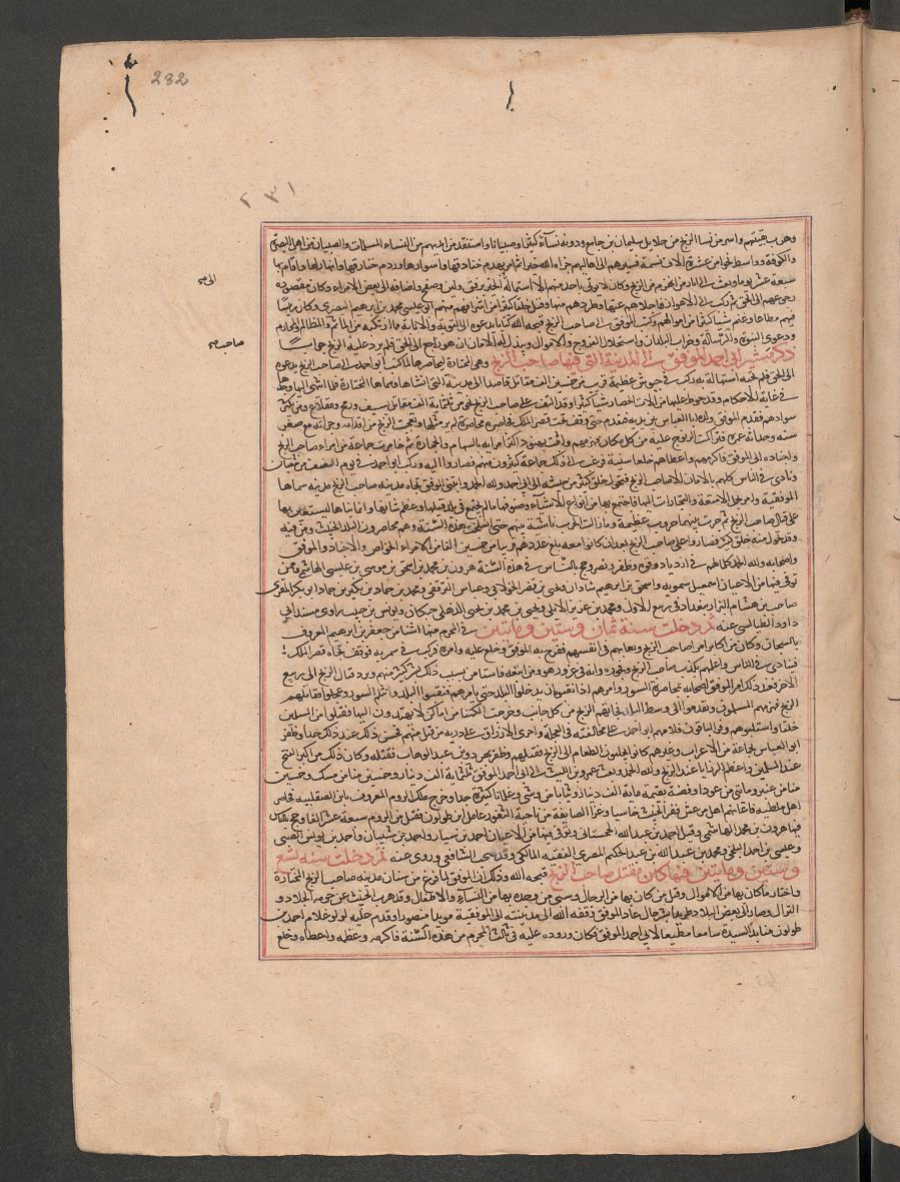 232
٢٣١
وهرب بقيتهم واسر من نسا الزنج من حلايل سليمان بن جامع وذويه نساء كثيرة وصبيانا واستنقذ من ايديهم من النساء المسلمات والصبيان من اهل البصرة
والكوفة وواسط نحوا من عشرة الاف نسمة فسيرهم الى اهاليهم جزاه الله خيرا ثم امر بهدم خنادقها واسوارها وردم خنادقها وانهارها واقام بها
سبعة عشر يوما وبعث في اثار من انهزم من الزنج وكان لا يؤتى باحد منهم الا استماله الى الحق برفق ولين وصفح واضافه الى بعض الامراء وكان مقصوده
رجوعهم الى الحق ثم ركب الى الاهواز فاجلاهم عنها وطردهم منها وقتل خلقا كثيرا من اشرافهم منهم ابو عيسى محمد بن ابراهيم البصري وكان رئيسا
فيهم مطاعا وغنم شيئا كثيرا من اموالهم وكتب الموفق الى صاحب الزنج قبحه الله كتابا يدعوه الى التوبة والانابة مما ارتكبه من المآثم والمظالم والمحارم
ودعوى النبوة والرسالة وخراب البلدان واستحلال الفروج والاموال وبذل له الامان ان هو رجع الى الحق فلم يرد عليه الزنج جوابا
ذكر مسير ابي احمد الموفق الى المدينة التي فيها صاحب الزنج وهي المختارة ليحاصرها لما كتب ابو احمد الى صاحب الزنج يدعوه
الى الحق فلم يجبه استهانة به ركب في جيوش عظيمة قريب من خمسين الف مقاتل قاصدا الى مدينته التي انشاها وسماها المختارة فلما انتهى اليها وجدها
في غاية الاحكام وقد حوط عليها من الات الحصار شيئا كثيرا وقد التف على صاحب الزنج نحو من ثلثماية الف مقاتل بسيف ورمح ومقلاع ومن يكثر
سوادهم فقدم الموفق ولده ابا العباس بين يديه فتقدم حتى وقف تحت قصر الملك فحاصره محاصرة لم ير مثلها وتعجب الزنج من اقدامه وجراته مع صغر
سنه وحداثة عمره فتراكمت الزنوج عليه من كل مكان فهزمهم واثبت بهبوذ اكبر امرائه بالسهام والحجارة ثم خامر جماعة من امراء صاحب الزنج
واجناده الى الموفق فاكرمهم واعطاهم خلعا سنية فرغب في ذلك جماعة كثيرون منهم فصاروا اليه وركب ابو احمد في يوم النصف من شعبان
ونادى في الناس كلهم بالامان الا صاحب الزنج فتحول خلق كثير من جيشه الى ابي احمد ولله الحمد وابتنى الموفق تجاه مدينة صاحب الزنج مدينة سماها
الموفقية وامر بحمل الامتعة والتجارات اليها فاجتمع بها من انواع الاشياء وصنوفها ما لم يجتمع في بلد قبلها وعظم شانها وانما بناها ليستعين بها
على قتال صاحب الزنج ثم جرت بينهما حروب عظيمة وما زالت الحرب ناشبة بينهم حتى انسلخت هذه السنة وهم محاصرون البلد الخبيث ومن فيه
وقد تحول منه خلق كثير فصاروا على صاحب الزنج بعد ان كانوا معه بلغ عددهم قريبا من خمسين الفا من الامراء الخواص والاجناد والموفق
واصحابه ولله الحمد كل مالهم في ازدياد وقوة وظفر ونصر وحج بالناس في هذه السنة هرون بن محمد بن اسحق بن موسى بن عيسى الهاشمي وممن
توفي فيها من الاعيان اسمعيل سمويه واسحق بن ابراهيم شاذان ويحيى بن نصر الخولاني وعباس الترقفي ومحمد بن حماد بن بكر بن حماد ابو بكر المقري
صاحب بن هشام البزار ببغداد في ربيع الاول ومحمد بن عزيز الايلي ويحيى بن محمد بن يحيى الذهلي حيكان ويونس بن حبيب راوي مسند ابي
داود الطيالسي عنه ثم دخلت سنة ثمان وستين ومايتين في المحرم منها استامن جعفر بن ابرهيم المعروف
بالسجان وكان من اكابر امراء صاحب الزنج وثقاتهم في انفسهم ففرح به الموفق وخلع عليه وامره فركب في سمرية فوقف تجاه قصر الملك
فنادى في الناس واعلمهم بكذب صاحب الزنج وفجوره وانه في غرور هو ومن اتبعه فاستامن بسبب ذلك بشر كثير منهم وبرد قتال الزنج الى ربيع
الاخر فعند ذلك امر الموفق اصحابه بمحاصرة السور وامرهم اذا نقبوه ان لا يدخلوا البلد حتى يامرهم فنقبوا السور وانثلم السور وعجلوا فقاتلهم
الزنج فهزمهم المسلمون وتقدموا الى وسط البلد فجاءتهم الزنج من كل جانب وخرجت الكمنا من اماكن لا يهتدون اليها فقتلوا من المسلمين
خلقا واستلبوهم وفر الباقون فلامهم ابو احمد على مخالفته في العجلة واجرى الارزاق على ذرية من قتل منهم فحسن ذلك عند ذلك جدا وظفر
ابو العباس بجماعة من الاعراب وغيرهم كانوا يجلبون الطعام الى الزنج فقتلهم وظفر ببهبوذ بن عبد الوهاب فقتله وكان ذلك من اكبر الفتح
عند المسلمين واعظم الرزايا عند الزنج ولله الحمد وبعث عمرو بن الليث الى ابي احمد الموفق ثلثماية الف دينار وخمسين منا من مسك وخمسين
منا من عنبر ومايتي من عود وفضة بقيمة ماية الف دينار وثيابا من وشي وغلمانا كثيرة جدا وخرج ملك الروم المعروف بابن الصقلبية فحاصر
اهل ملطية فاعانهم اهل مرعش ففر الخبيث خاسيا وغزا الصايفة من ناحية الثغور عامل ابن طولون فقتل من الروم سبعة عشر الفا وحج بالناس
فيها هرون بن محمد الهاشمي وقتل احمد بن عبد الله الخجستاني وتوفي فيها من الاعيان احمد بن سيار واحمد بن شيبان واحمد بن يونس الضبي
وعيسى بن احمد البلخي ومحمد بن عبد الله بن عبد الحكم المصري الفقيه المالكي وقد صحب الشافعي وروى عنه ثم دخلت سنه تسع
وستين ومايتين فيها كان مقتل صاحب الزنج قبحه الله وذلك ان الموفق لما فرغ من شان مدينة صاحب الزنج المختارة
واحتاز ما كان بها من الاموال وقتل من كان بها من الرجال وسبى من وجد بها من النساء والاطفال وقد هرب الخبيث عن حومة الجلاد و
النزال وصار الى بعض البلاد طريدا بشر حال عاد الموفق وفقه الله الى مدينته الى الموفقية مويدا منصورا وقدم عليه لولو غلام احمد بن
طولون منابذا لسيده سامعا مطيعا لابي احمد الموفق وكان وروده عليه في ثالث المحرم من هذه السنة فاكرمه وعظمه واعطاه وخلع